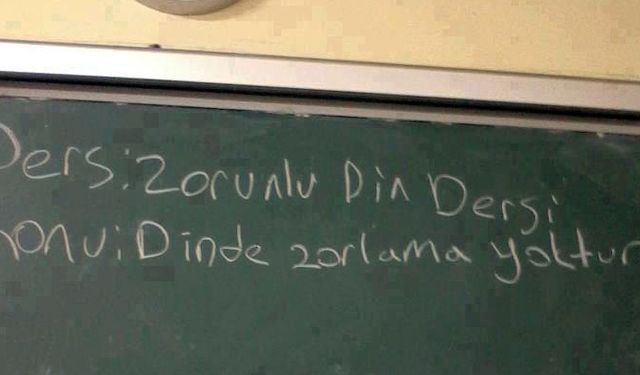 Ders: Zorunlu Din Dersi
Konu: Dinde zorlama yoktur